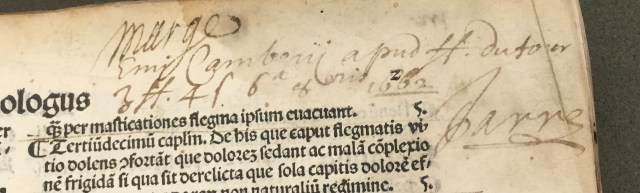 marge
Emi Camberij apud ff. du four
3 ff. 4 s. 6 a 1662
Jarre
ologus
q̄ per masticationes flegma ipsum euacuant. ζ.
¶ Tertiūdecimū caplm̄. De his que caput flegmatis vi⸗
tio dolens ↄfortāt que dolorez sedant ac malā cōplexio
nē frigidā si qua sit derelicta que sola capitis dolorē ef⸗
non naturaliū redimine. ζ.